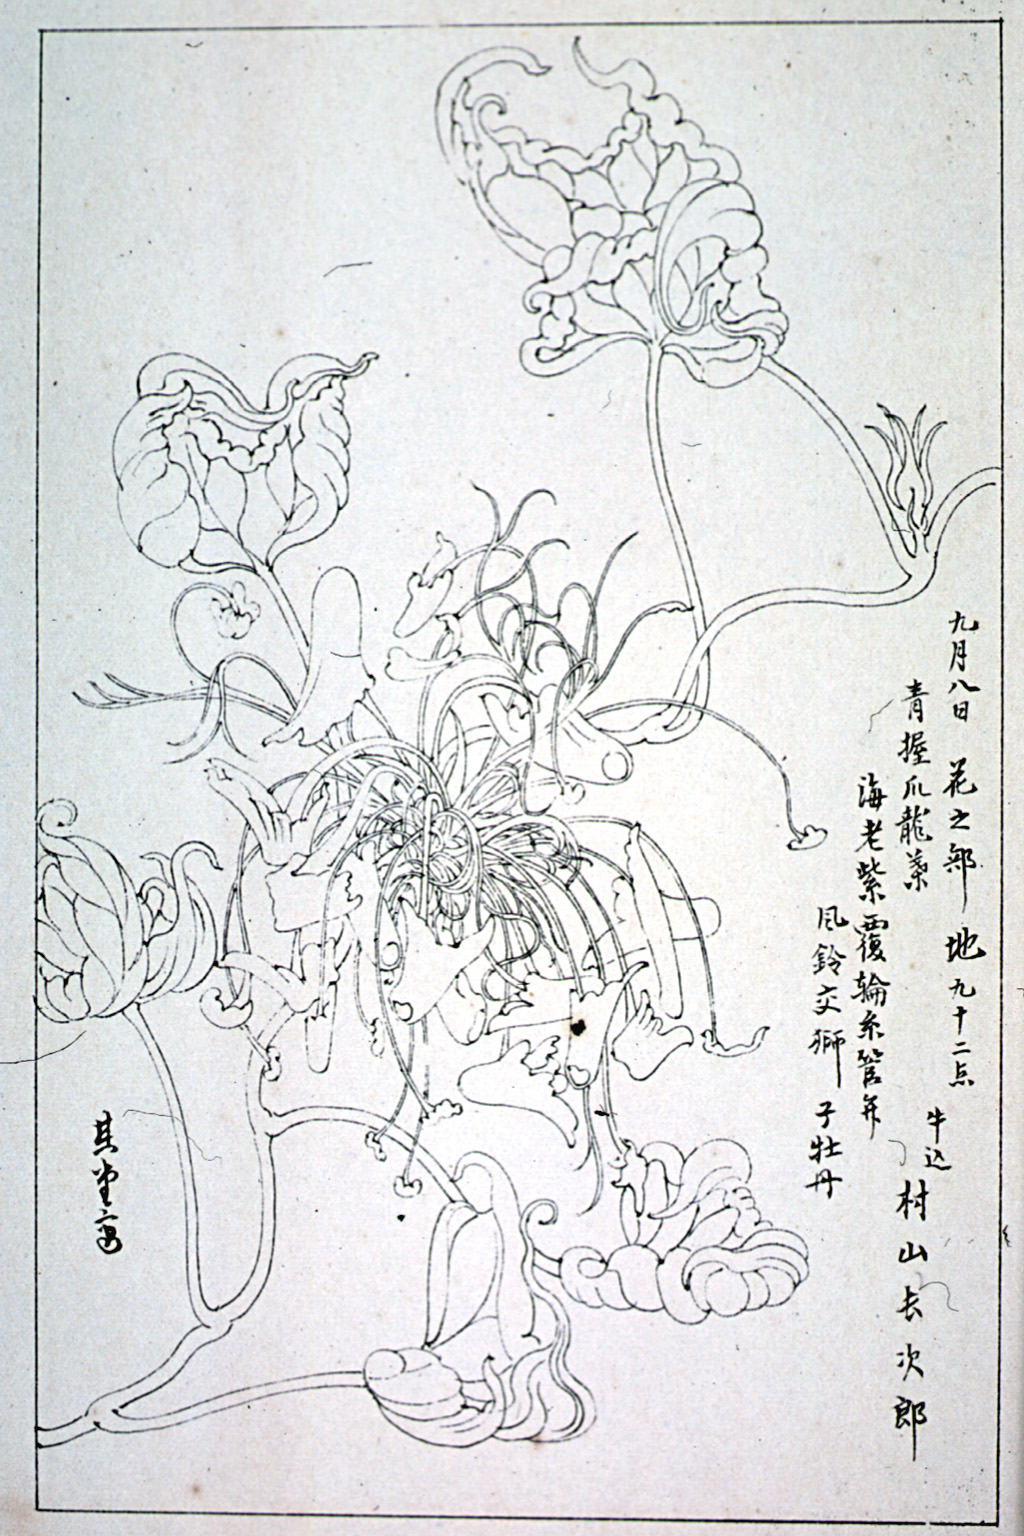 九月八日 花之部 地 九十二点
牛込 村山長次郎
青握爪龍葉
海老紫覆輪糸管弁
風鈴交獅子牡丹
其堂写